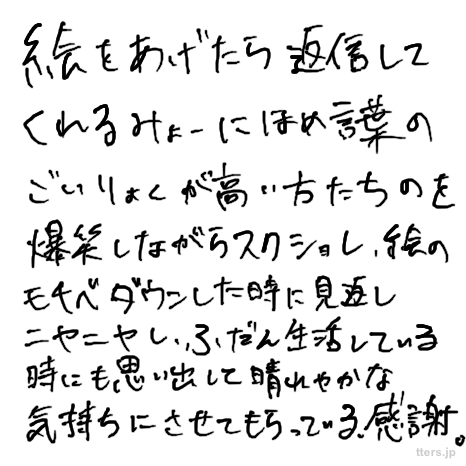 絵をあげたら返信して
くれるみょーにほめ言葉の
ごいりょくが高い方たちのを
爆笑しながらスクショし、絵の
モチベダウンした時に見返し
ニヤニヤし、ふだん生活している
時にも思い出して晴れやかな
気持ちにさせてもらっている、感謝。
tters.jp